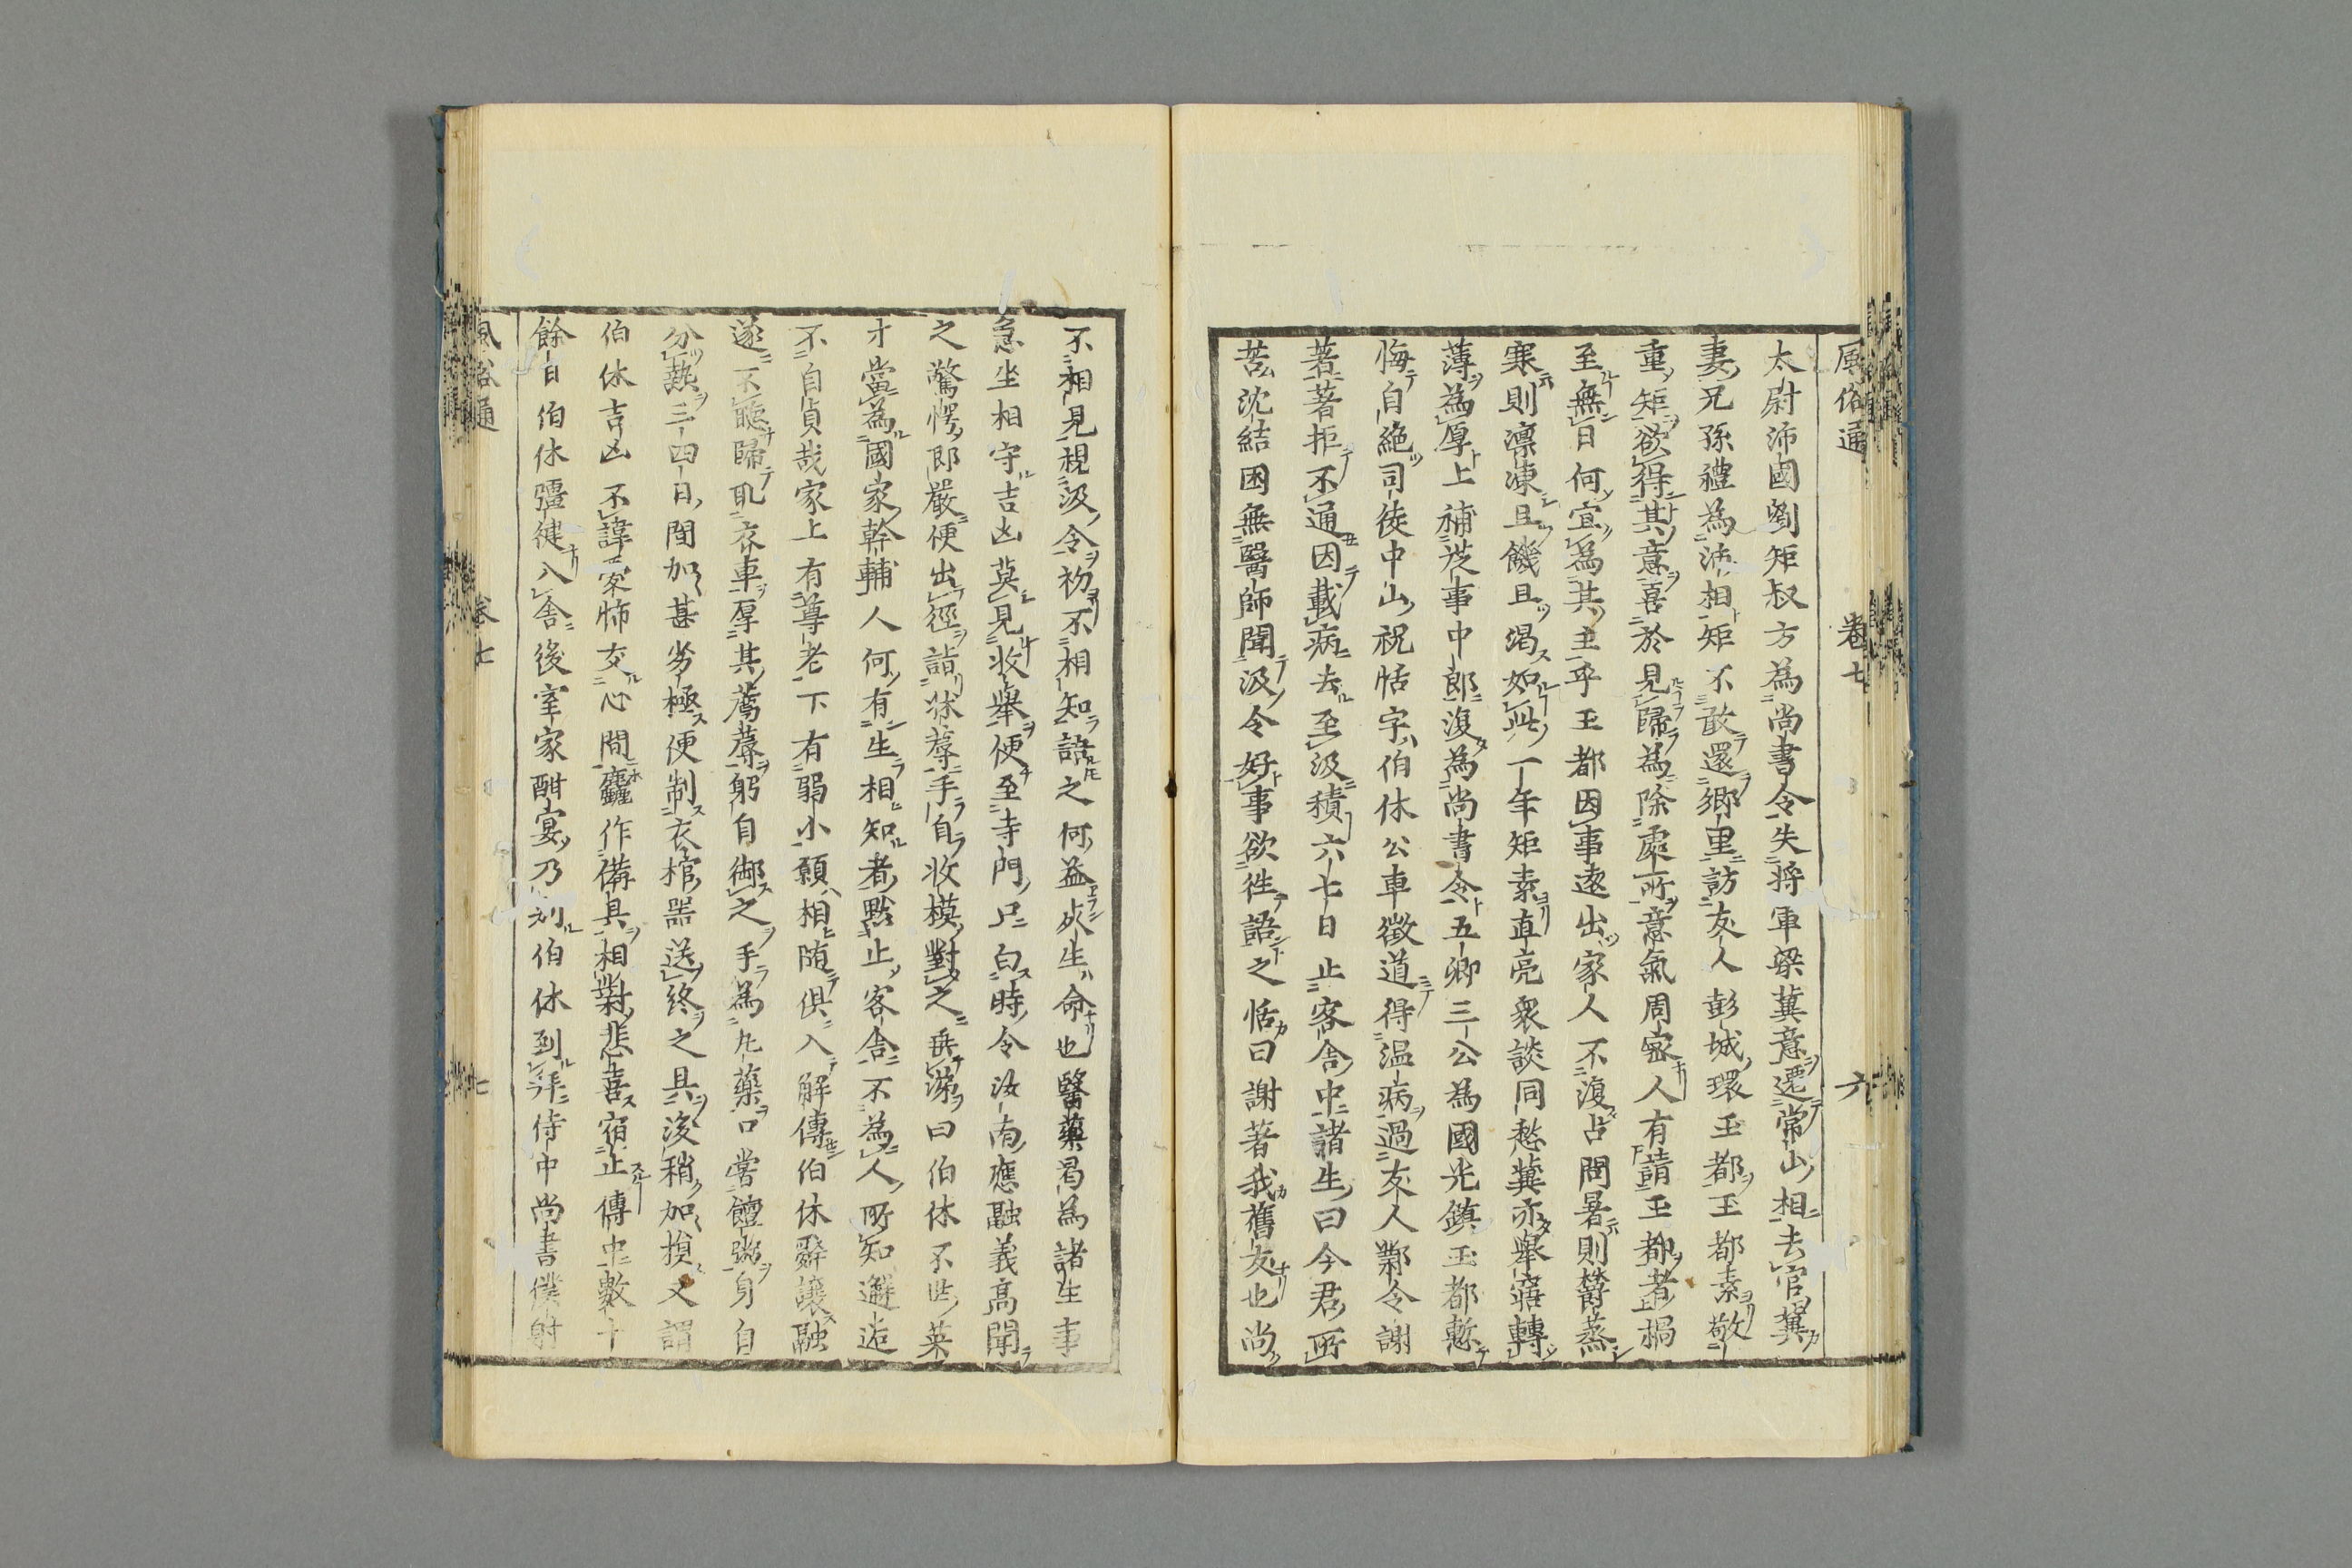 風俗通　卷七　六
太尉沛國劉矩叔方為尚書令失將軍梁冀意遷常山相去官冀
妻兄孫禮為沛相矩不敢還鄉里訪友人彭城環玉都玉都素敬
重矩欲得其意喜於見歸為除處所意氣周密人有請玉都者禍
至無日何宜為其主乎玉都因事遠出家人不復占問暑則欝蒸
寒則凛凍且饑且渴如此一年矩素直亮衆談同愁冀亦舉寤轉
薄為厚上補從事中郎復為尚書令五卿三公為國光鎮玉都慙
悔自絶司徒中山祝恬字伯休公車徵道得温病過友人鄴令謝
著著拒不通因載病去至汲積六七日止客舍中諸生曰今君所
苦沈結困無醫師聞汲令好事欲往語之恬曰謝著我舊友也尚
不相見視汲令初不相知語之何益死生命也醫藥曷為諸生事
急坐相守吉凶莫見收舉便至寺門口白時令汝南應融義高聞
之驚愕即嚴便出徑詣牀蓐手自收模對之垂涕曰伯休不世英
才當為國家幹輔人何有生相知者默止客舍不為人所知邂逅
不自貞哉家上有尊老下有弱小願相随俱入解傳伯休辭讓融
遂不聽歸取衣車厚其薦蓐躬自御之手為丸藥口嘗饘粥身自
分熱三四日間加甚劣極便制衣棺器送終之具後稍加損又謂
伯休吉凶不諱憂怖交心間麤作備具相對悲喜宿止傳中數十
餘日伯休彊健入舍後室家酣宴乃别伯休到拜侍中尚書僕射
風俗通　卷七　七